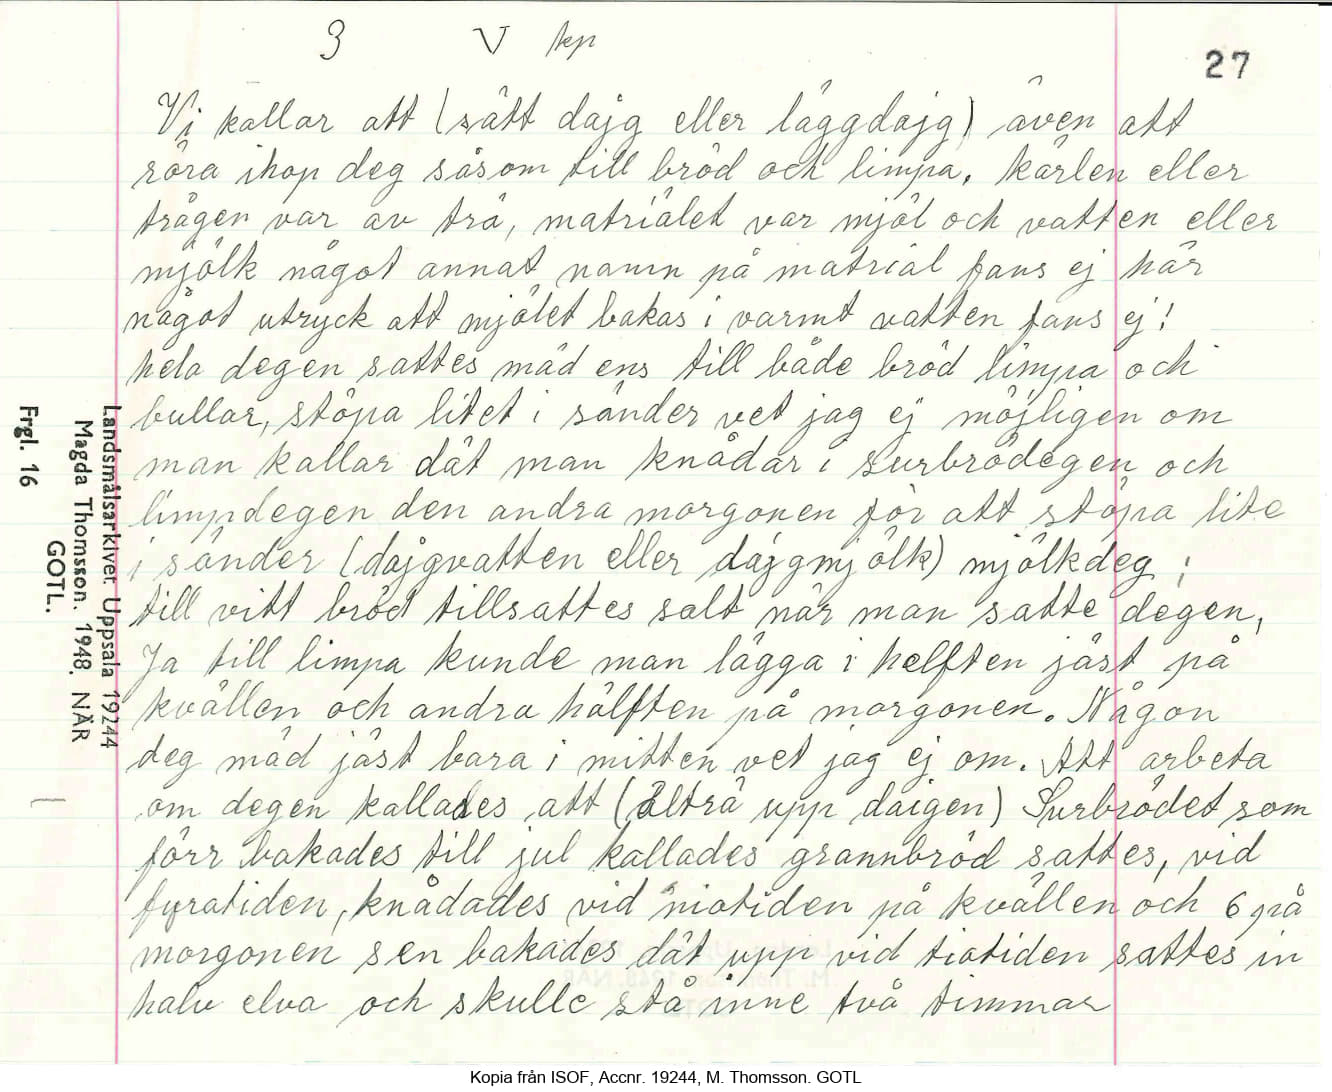 3 V kp
27
Vi kallar att (sätt dajg eller läggdajg) även att
röra ihop deg såsom till bröd och limpa. Kärlen eller
trågen var av trä, matriälet var mjöl och vatten eller
mjölk något annat namn på matriäl fans ej här
något utryck att mjölet bakas i varmt vatten fans ej!
hela degen sattes mäd ens till både bröd limpa och
bullar, stöpa litet i sänder vet jag ej möjligen om
man kallar dät man knådar i surbrödegen och
limpdegen den andra morgonen för att stöpa lite
i sänder (dajgvatten eller dajgmjölk) mjölkdeg ;
till vitt bröd tillsattes salt när man satte degen,
Ja till limpa kunde man lägga i helften jäst på
kvällen och andra hälften på morgonen. Någon
deg mäd jäst bara i mitten vet jag ej om. Att arbeta
om degen kallades att (älträ upp daigen) Surbrödet som
förr bakades till jul kallades grannbröd sattes, vid
fyratiden, knådades vid niotiden på kvällen och 6 på
morgonen sen bakades dät upp vid tiotiden sattes in
halv elva och skulle stå inne två timmar
Landsmålsarkivet Uppsala 19244
Magda Thomsson. 1948. NÄR
GOTL.
Frgl. 16
Kopia från ISOF, Accnr. 19244, M. Thomsson. GOTL